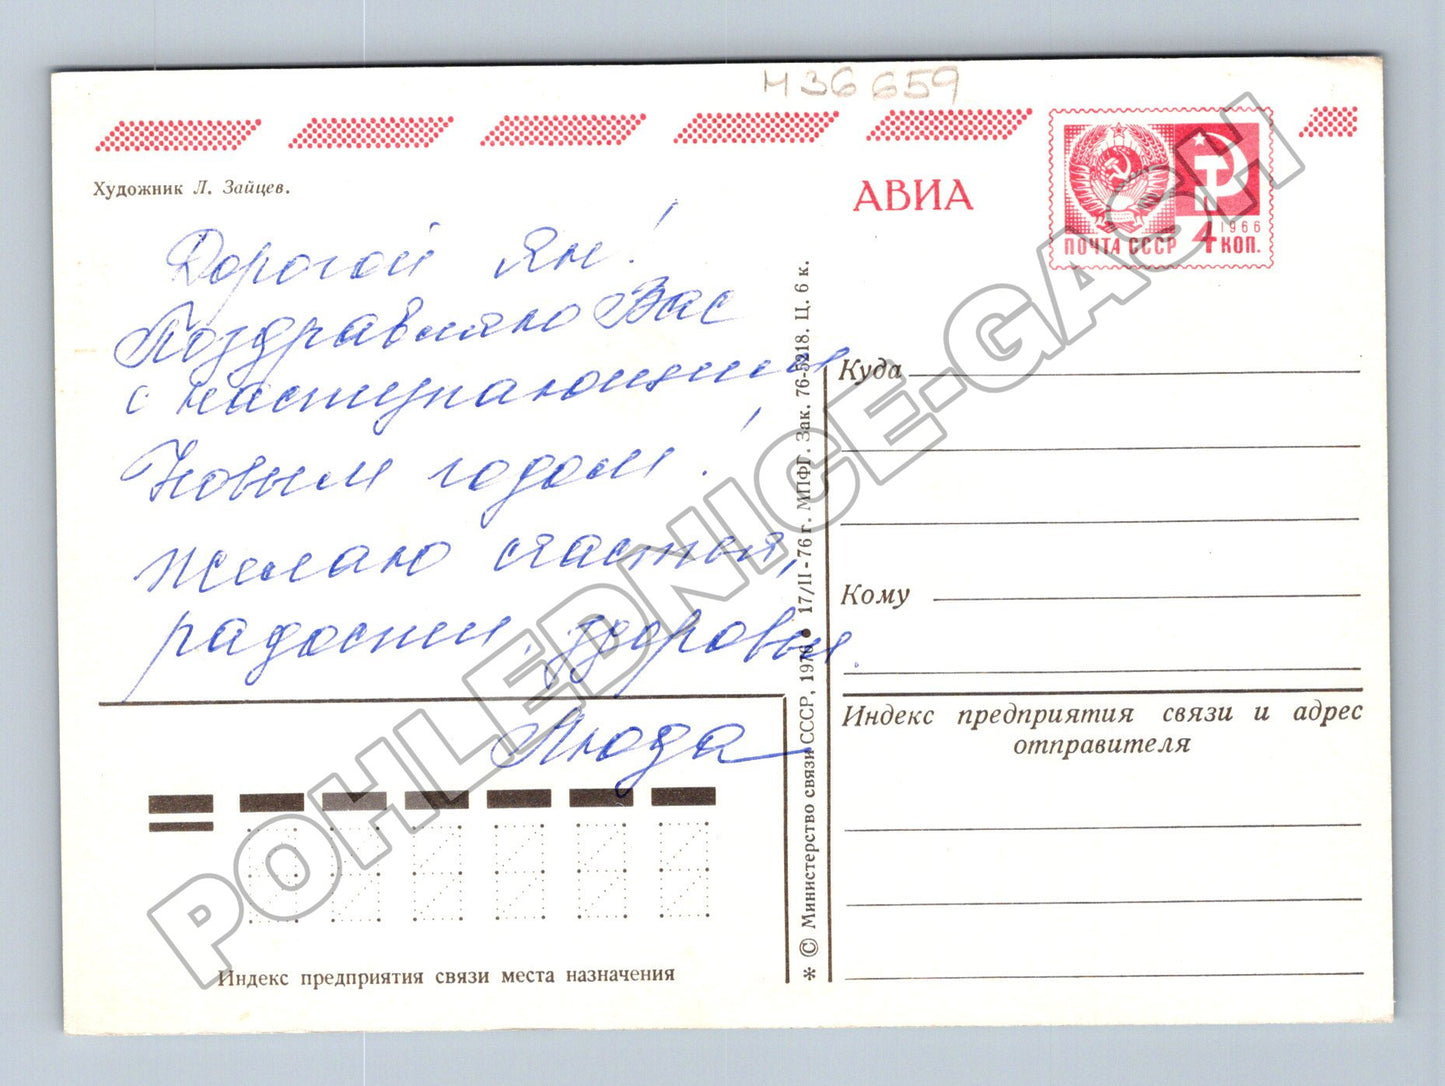 М36659
Художник Л. Зайцев.
АВИА
1966
ПОЧТА СССР 4 КОП.
Дорогой Ян!
Поздравляю Вас
с наступающим
Новым годом!
Желаю счастья,
радости, здоровья.
Люда
Индекс предприятия связи места назначения
* © Министерство связи СССР, 1976 • 17/II-76 г. МПФГ. Зак. 76-5218. Ц. 6 к.
Куда
Кому
Индекс предприятия связи и адрес
отправителя
POHLEDNICE-GASH